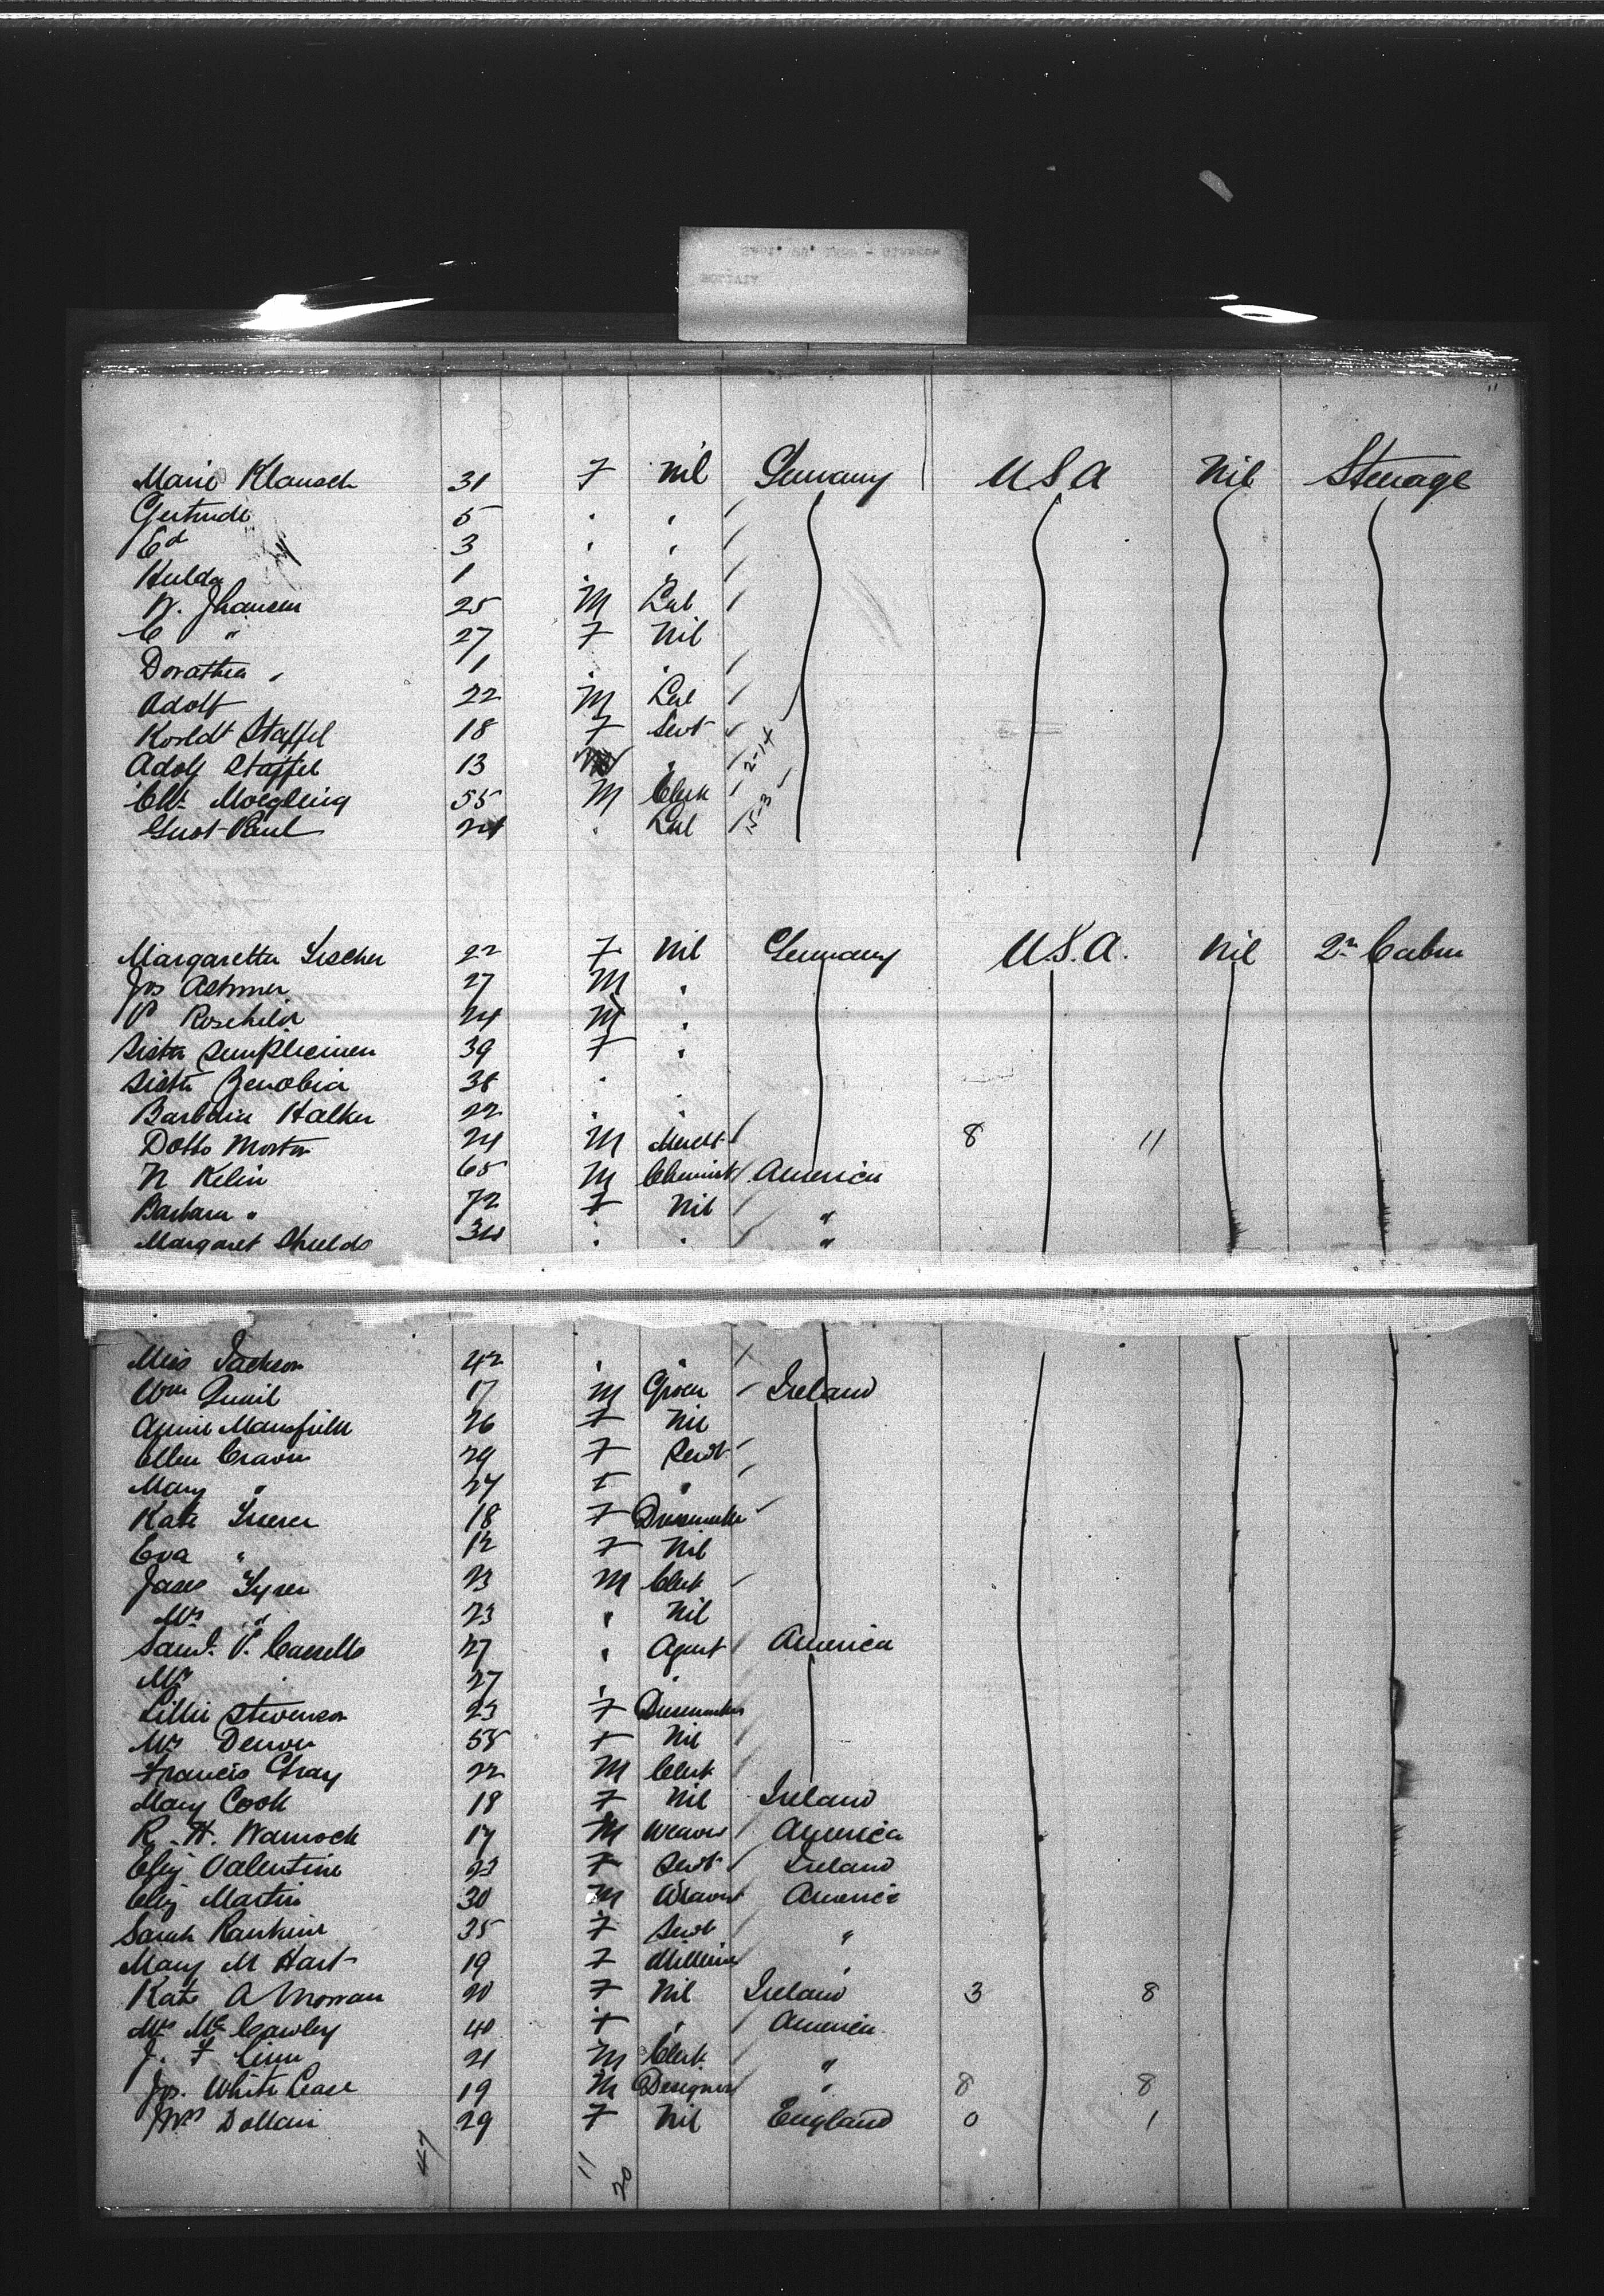 11
Marie Klausch 31 F Nil Germany USA Nil Steerage
Gertrude 5 " "
Ed 3 " "
Hulda 1 " "
W. Jhansen 25 M Lab
C " 27 F Nil
Dorathea " 1 " "
Adolf 22 M Lab
Staffel 18 F Servt
Adolf Staffel 13 "
Chr. Moegling 55 M Clerk
Gust Paul 24 " Lab
2-14
15-3
Margaretta Fischer 22 F Nil Germany U.S.A. Nil 2n Cabin
Jos 27 M "
P 24 M "
Sister 39 F "
Sister Zenobia 38 "
Barbara Halker 22 " "
Dotto Morton 24 M Mercht 8 11
N Kelin 65 M Chemist America
Barbara " 72 F Nil "
Margaret Shields 34 " " "
Miss Jackson 42 " "
Wm 17 M Grocer Ireland
Annie Mansfield 26 F Nil
Ellen Craven 29 F Servt
Mary " 24 F "
Kate 18 F Dressmaker
Eva " 12 F Nil
James Tyrer 23 M Clerk
Mrs " 23 " Nil
Saml. P. 27 " Agent America
Mrs 27 "
Lillie Stevenson 23 F Dressmaker
Mrs Denver 55 F Nil
Francis Gray 22 M Clerk
Mary Cook 18 F Nil Ireland
R. H. Warnock 17 M Weaver America
Eliz Valentine 23 F Servt Ireland
Eliz Martin 30 M Weaver America
Sarah Rankine 35 F Servt "
Mary M Hart 19 F Milliner "
Kate A Morran 20 F Nil Ireland 3 8
Mrs McCawley 40 F " America
J. F Linn 21 M Clerk "
Jos. White Case 19 M Designer " 8 8
Mrs Dollan 29 F Nil England 0 1
47 11 20